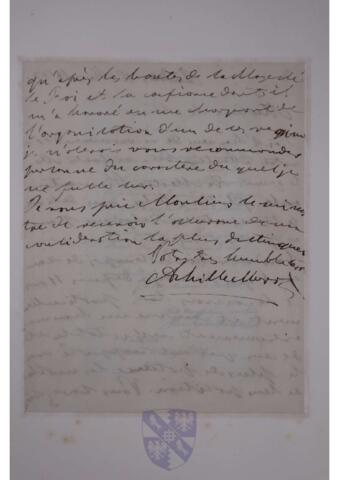 qu'après les bontés de la Majesté
le Roi et la confiance dont il
m'a honoré en me chargeant de
l'organisation d'un de ses régim
je n'oserois vous recommander
personne du caractère duquel je
ne fusse sur.
Je vous prie Monsieur le minis
tre de recevoir l'assurance de ma
considération la plus distinguée
Votre très humble
Achille Murat